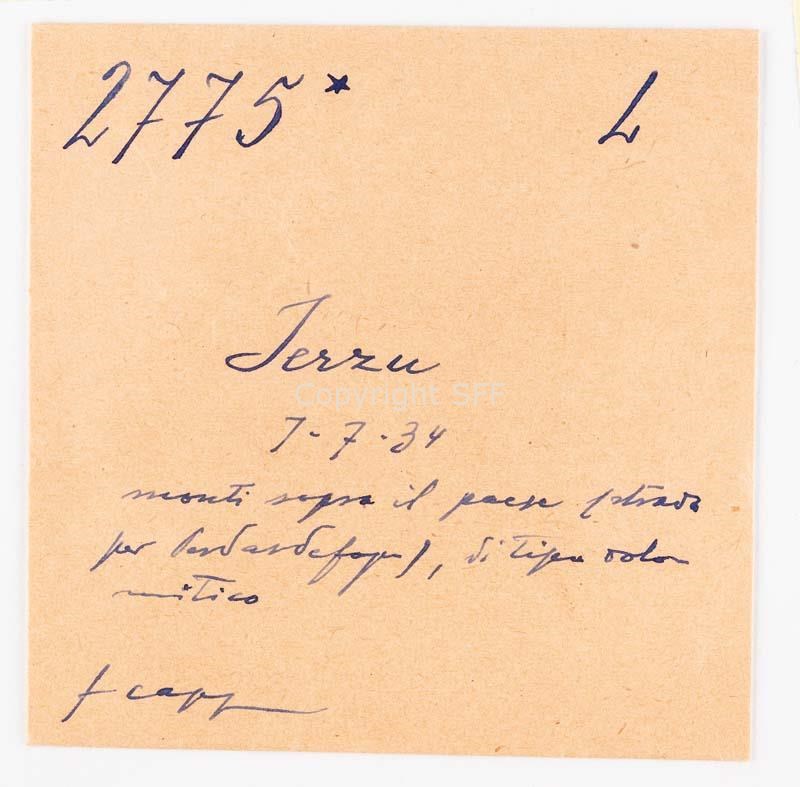 2775* L
Jerzu
Copyright SFF
7-7-34
monti sopra il paese (strada
per Perdasdefogu), di tipo dolo
mitico
f capp